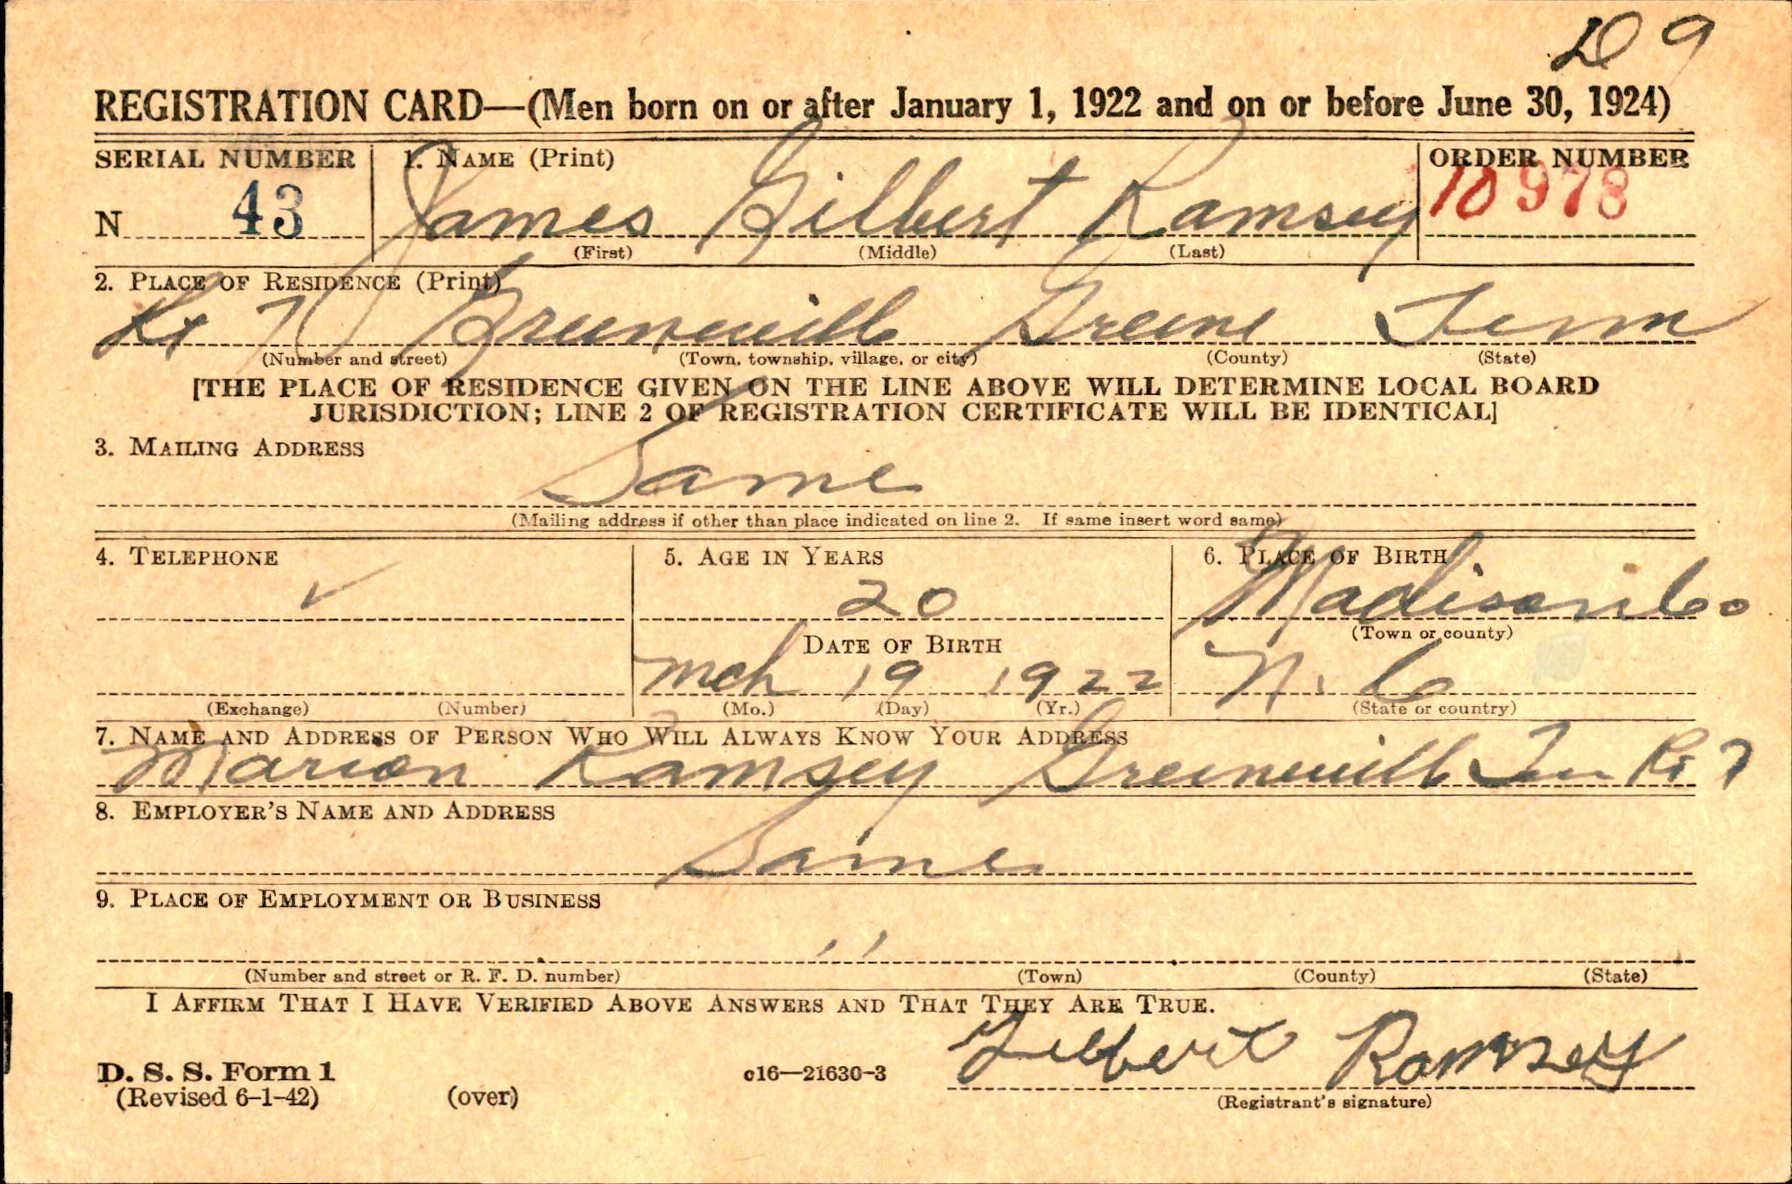 D 9
REGISTRATION CARD—(Men born on or after January 1, 1922 and on or before June 30, 1924)
SERIAL NUMBER 1. NAME (Print) ORDER NUMBER
N 43 James Gilbert Ramsey 10978
(First) (Middle) (Last)
2. PLACE OF RESIDENCE (Print)
Rt 7 Greeneville Greene Tenn
(Number and street) (Town, township, village, or city) (County) (State)
[THE PLACE OF RESIDENCE GIVEN ON THE LINE ABOVE WILL DETERMINE LOCAL BOARD
JURISDICTION; LINE 2 OF REGISTRATION CERTIFICATE WILL BE IDENTICAL]
3. MAILING ADDRESS
Same
(Mailing address if other than place indicated on line 2. If same insert word same)
4. TELEPHONE 5. AGE IN YEARS 6. PLACE OF BIRTH
20 Madison Co
DATE OF BIRTH (Town or county)
Mch 19 1922 N. C
(Exchange) (Number) (Mo.) (Day) (Yr.) (State or country)
7. NAME AND ADDRESS OF PERSON WHO WILL ALWAYS KNOW YOUR ADDRESS
Marion Ramsey Greeneville Tenn Rt 7
8. EMPLOYER'S NAME AND ADDRESS
Same
9. PLACE OF EMPLOYMENT OR BUSINESS
"
(Number and street or R. F. D. number) (Town) (County) (State)
I AFFIRM THAT I HAVE VERIFIED ABOVE ANSWERS AND THAT THEY ARE TRUE.
Gilbert Ramsey
D. S. S. Form 1 c16—21630-3
(Revised 6-1-42) (over) (Registrant's signature)